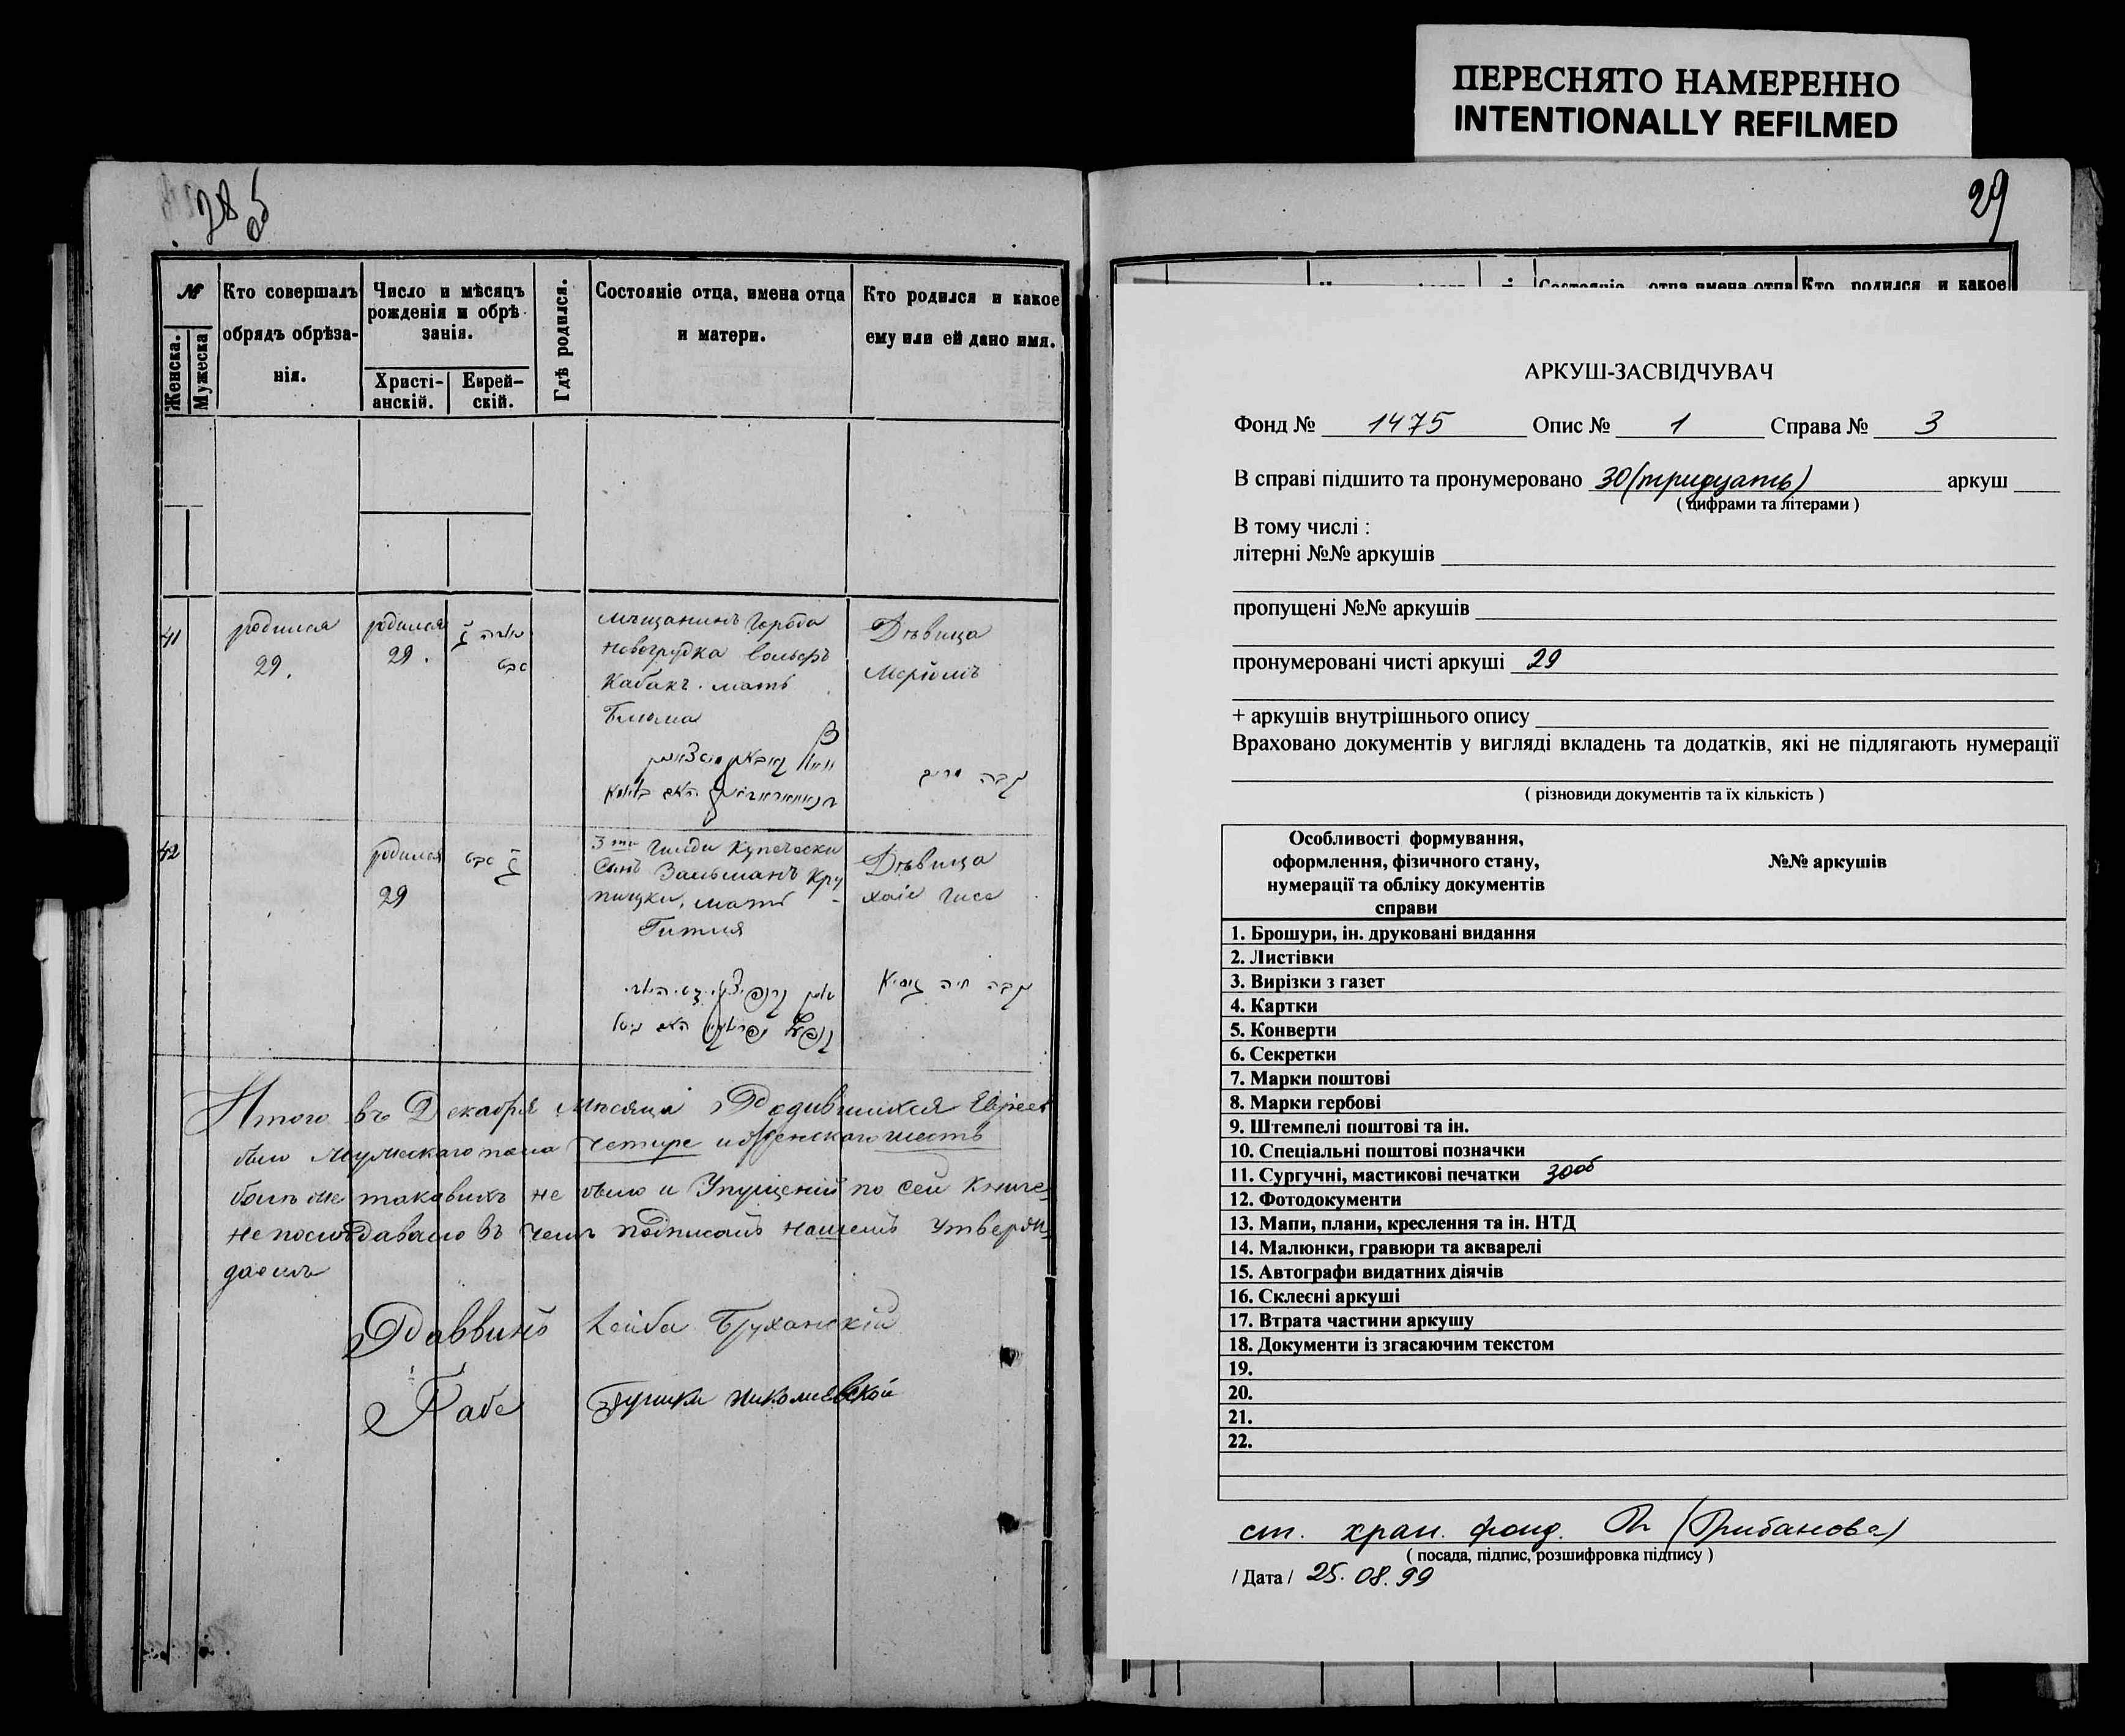 ПЕРЕСНЯТО НАМЕРЕННО
INTENTIONALLY REFILMED
28 об
№
Женска.
Мужеска
Кто совершалъ
обрядъ обрѣза-
нія.
Число и мѣсяцъ
рожденія и обрѣ
занія.
Христі-
анскій.
Еврей-
скій.
Гдѣ родился.
Состояніе отца, имена отца
и матери.
Кто родился и какое
ему или ей дано имя.
41
родился
29.
родился
29.
טבת
мѣщанинъ Города
Новогрудка Вольфъ
Кабакъ. мать
Блюма
Дѣвица
Меріомъ
נקבה מרים
42
родился
29
טבת
3ти Гилди Купечески
Сынъ Зальманъ Кру
пицки, мать
Гитля
Дѣвица
хаіе Гисе
נקבה חיה
Итого въ Декабрѣ мѣсяцѣ Родившихся Евреев
было Мужескаго пола четыре и женскаго шесть
болѣе таковыхъ не было и Упущеній по сей Книге
не последавало въ чемъ подписомъ нашемъ утверж
даемъ
Раввинъ Лейба Бруханскій
Габе
29
Состояніе отца имена отца
Кто родился и какое
АРКУШ-ЗАСВІДЧУВАЧ
Фонд № 1475 Опис № 1 Справа № 3
В справі підшито та пронумеровано 30 (тридцать) аркуш
( цифрами та літерами )
В тому числі :
літерні №№ аркушів
пропущені №№ аркушів
пронумеровані чисті аркуші 29
+ аркушів внутрішнього опису
Враховано документів у вигляді вкладень та додатків, які не підлягають нумерації
( різновиди документів та їх кількість )
Особливості формування,
оформлення, фізичного стану,
нумерації та обліку документів
справи
№№ аркушів
1. Брошури, ін. друковані видання
2. Листівки
3. Вирізки з газет
4. Картки
5. Конверти
6. Секретки
7. Марки поштові
8. Марки гербові
9. Штемпелі поштові та ін.
10. Спеціальні поштові позначки
11. Сургучні, мастикові печатки 30об
12. Фотодокументи
13. Мапи, плани, креслення та ін. НТД
14. Малюнки, гравюри та акварелі
15. Автографи видатних діячів
16. Склеєні аркуші
17. Втрата частини аркушу
18. Документи із згасаючим текстом
19.
20.
21.
22.
ст. хран. фонд. (Грибанова)
( посада, підпис, розшифровка підпису )
/ Дата / 25.08.99